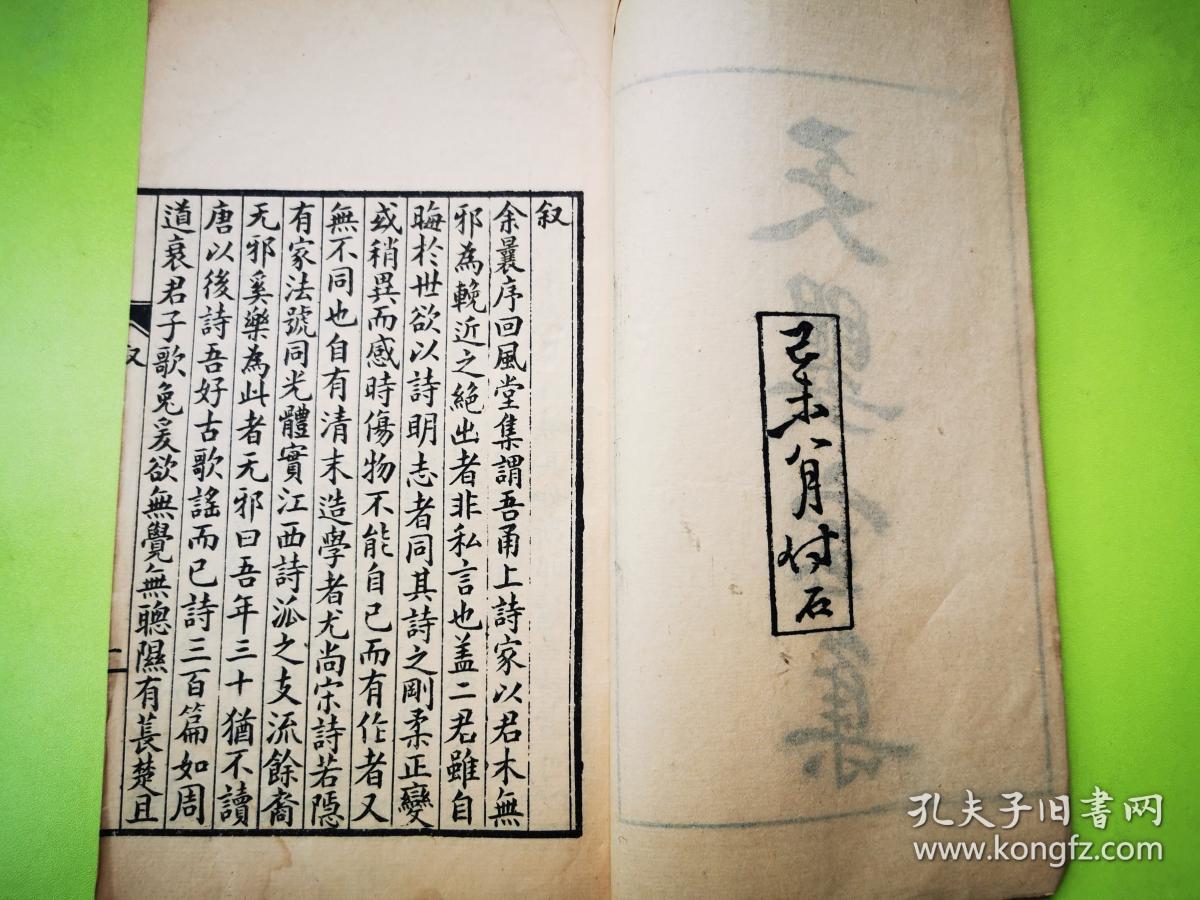 己未八月付石
叙
余曩序回風堂集謂吾甬上詩家以君木無
邪為輓近之絶出者非私言也盖二君雖自
晦於世欲以詩明志者同其詩之剛柔正變
或稍異而感時傷物不能自已而有作者又
無不同也自有清末造學者尤尚宋詩若隱
有家法號同光體實江西詩派之支流餘裔
无邪奚樂為此者无邪曰吾年三十猶不讀
唐以後詩吾好古歌謠而已詩三百篇如周
道衰君子歌兔爰欲無覺無聰隰有萇楚且
叙
一
孔夫子旧书网
www.kongfz.com